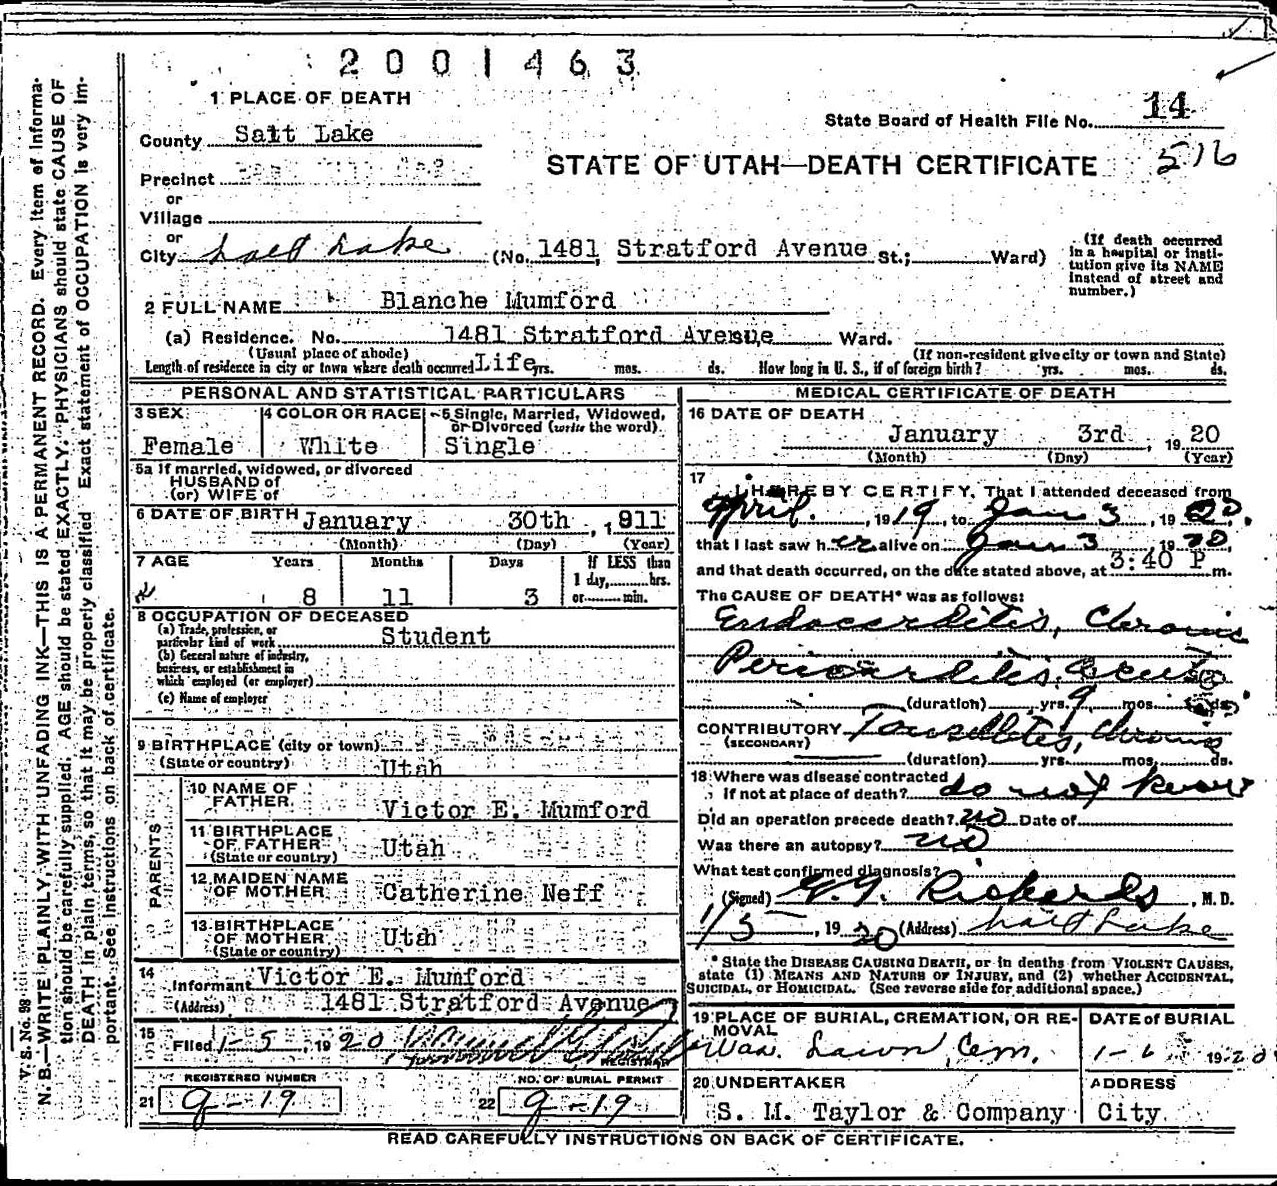 2001463
1 PLACE OF DEATH
County Salt Lake
State Board of Health File No. 14
516
STATE OF UTAH—DEATH CERTIFICATE
Precinct
or
Village
or
City Salt Lake (No. 1481 Stratford Avenue St.; Ward)
(If death occurred in a hospital or institution give its NAME instead of street and number.)
2 FULL NAME Blanche Mumford
(a) Residence. No. 1481 Stratford Avenue Ward.
(Usual place of abode) (If non-resident give city or town and State)
Length of residence in city or town where death occurred Life yrs. mos. ds. How long in U. S., if of foreign birth? yrs. mos. ds.
PERSONAL AND STATISTICAL PARTICULARS
3 SEX 4 COLOR OR RACE 5 Single, Married, Widowed, or Divorced (write the word).
Female White Single
5a If married, widowed, or divorced
HUSBAND of
(or) WIFE of
6 DATE OF BIRTH January 30th, 1911
(Month) (Day) (Year)
7 AGE Years Months Days If LESS than
1 day, hrs.
or min.
8 11 3
8 OCCUPATION OF DECEASED
(a) Trade, profession, or
particular kind of work Student
(b) General nature of industry,
business, or establishment in
which employed (or employer)
(c) Name of employer
9 BIRTHPLACE (city or town)
(State or country) Utah
PARENTS
10 NAME OF
FATHER Victor E. Mumford
11 BIRTHPLACE
OF FATHER Utah
(State or country)
12 MAIDEN NAME
OF MOTHER Catherine Neff
13 BIRTHPLACE
OF MOTHER Utah
(State or country)
14 Informant Victor E. Mumford
(Address) 1481 Stratford Avenue
15 Filed 1-5, 1920
REGISTRAR
REGISTERED NUMBER NO. OF BURIAL PERMIT
21 9-19 22 9-19
MEDICAL CERTIFICATE OF DEATH
16 DATE OF DEATH
January 3rd, 1920
(Month) (Day) (Year)
17 I HEREBY CERTIFY, That I attended deceased from
April, 1919, to Jan 3, 1920,
that I last saw her alive on Jan 3 1920,
and that death occurred, on the date stated above, at 3:40 P m.
The CAUSE OF DEATH* was as follows:
Endocarditis, Chronic
Pericarditis, Acute
(duration) yrs. 9 mos. ds.
CONTRIBUTORY Tonsillitis, Chronic
(SECONDARY)
(duration) yrs. mos. ds.
18 Where was disease contracted
If not at place of death? do not know
Did an operation precede death? no Date of
Was there an autopsy? no
What test confirmed diagnosis?
(Signed) G. G. Richards, M. D.
1/5, 1920 (Address) Salt Lake
* State the DISEASE CAUSING DEATH, or in deaths from VIOLENT CAUSES,
state (1) MEANS AND NATURE OF INJURY, and (2) whether ACCIDENTAL,
SUICIDAL, or HOMICIDAL. (See reverse side for additional space.)
19 PLACE OF BURIAL, CREMATION, OR RE-
MOVAL DATE of BURIAL
Was. Lawn Cem. 1-6 1920
20 UNDERTAKER ADDRESS
S. M. Taylor & Company City
READ CAREFULLY INSTRUCTIONS ON BACK OF CERTIFICATE.
V. S. No. 98
N. B.—WRITE PLAINLY, WITH UNFADING INK—THIS IS A PERMANENT RECORD. Every item of informa-
tion should be carefully supplied. AGE should be stated EXACTLY. PHYSICIANS should state CAUSE OF
DEATH in plain terms, so that it may be properly classified. Exact statement of OCCUPATION is very im-
portant. See instructions on back of certificate.